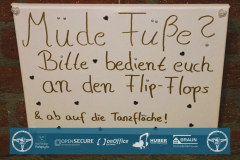 Mude Fuße?
Bitte bedient euch
an den Flip-Flops
& ab auf die Tanzfläche!
OPENSECURE
OnOffice
HUBER
BRAUN